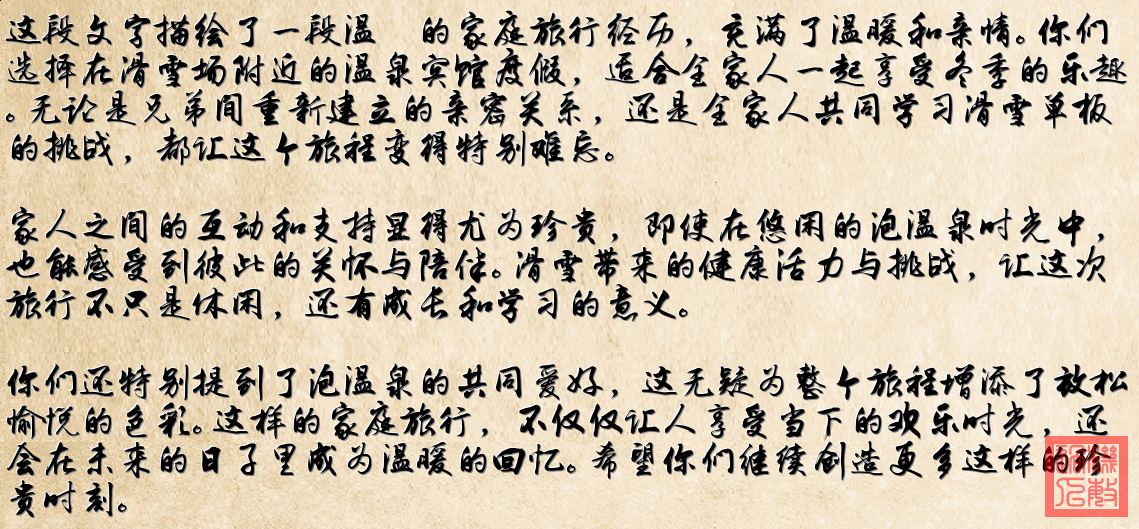 这段文字描绘了一段温 的家庭旅行经历，充满了温暖和亲情。你们
选择在滑雪场附近的温泉宾馆度假，适合全家人一起享受冬季的乐趣
。无论是兄弟间重新建立的亲密关系，还是全家人共同学习滑雪单板
的挑战，都让这个旅程变得特别难忘。
家人之间的互动和支持显得尤为珍贵，即使在悠闲的泡温泉时光中，
也能感受到彼此的关怀与陪伴。滑雪带来的健康活力与挑战，让这次
旅行不只是休闲，还有成长和学习的意义。
你们还特别提到了泡温泉的共同爱好，这无疑为整个旅程增添了放松
愉悦的色彩。这样的家庭旅行，不仅仅让人享受当下的欢乐时光，还
会在未来的日子里成为温暖的回忆。希望你们继续创造更多这样的珍
贵时刻。